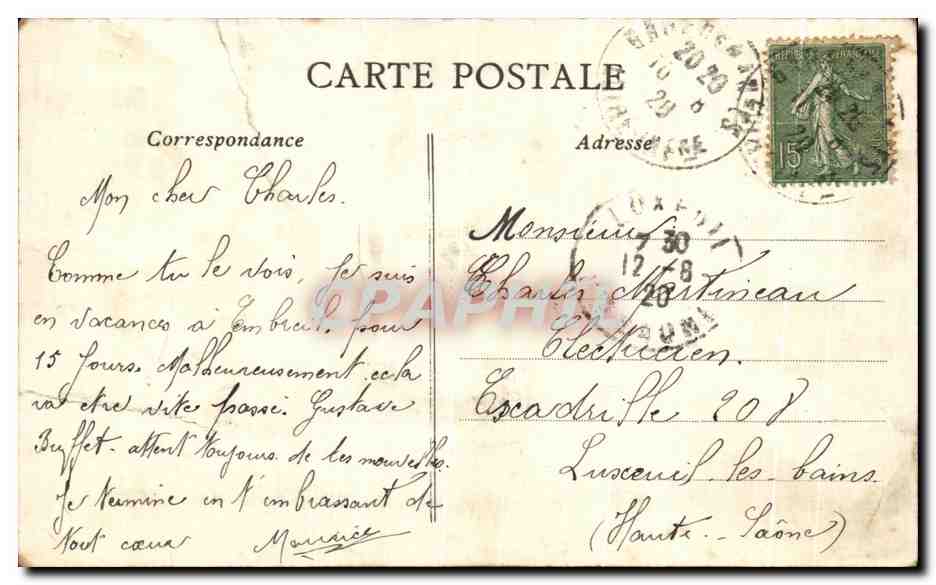 CARTE POSTALE
Correspondance
Mon cher Charles.
Comme tu le vois, je suis
en vacances à Embreil, pour
15 jours. Malheureusement cela
va etre vite passé. Gustave
Buffet attent toujours de tes nouvelles.
Je termine en t'embrassant de
tout cœur Maurice
Adresse
Monsieur
Charles Martineau
Electricien.
Escadrille 208
Luxeuil-les-bains
(Haute-Saône)
20 20
10 8
20
LUXEUIL
7 30
12 - 8
20
15
CPAPHIL